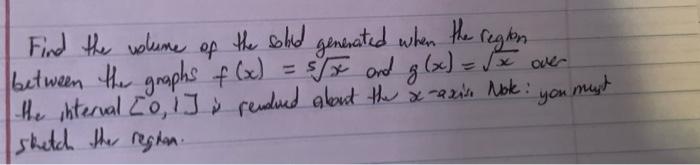 Find the volume of the solid generated when the region
between the graphs f(x) = ⁵√x and g(x) = √x over
the interval [0, 1] is revolved about the x-axis. Note: you must
sketch the region.